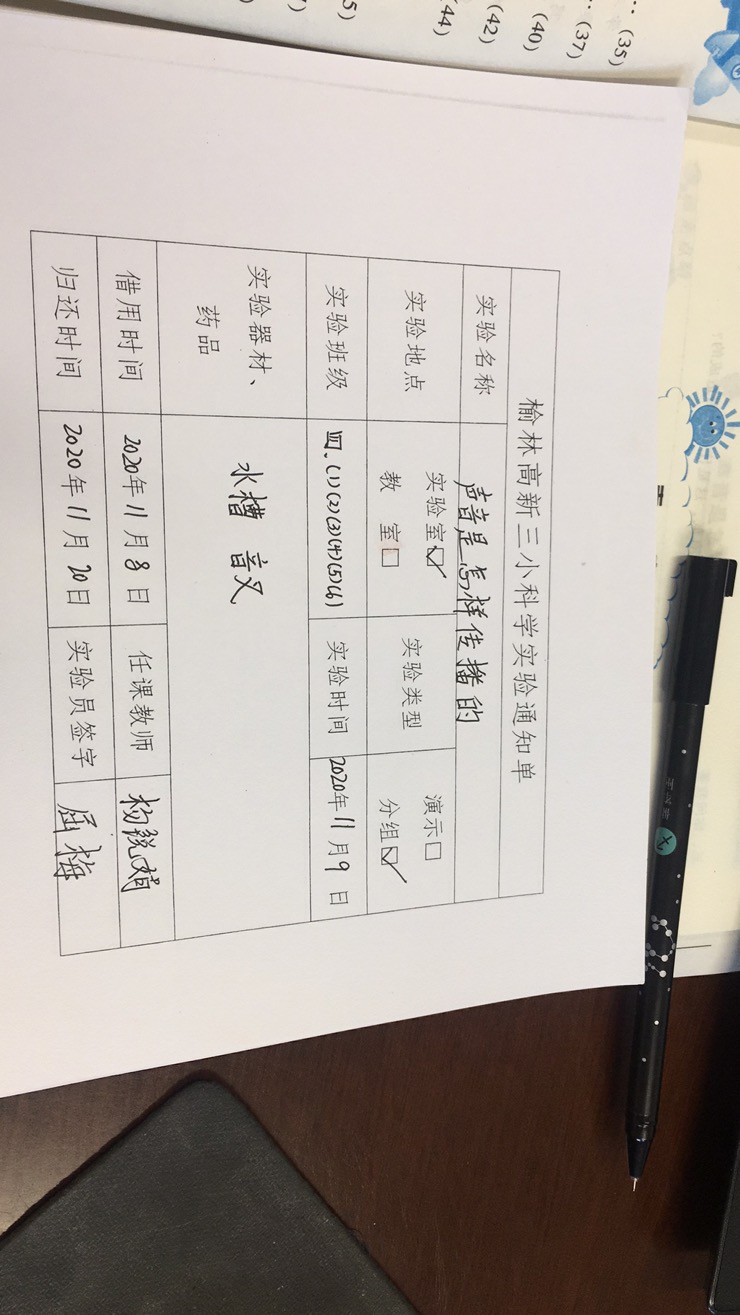 (35)
(37)
(40)
(42)
(44)
榆林高新三小科学实验通知单
实验名称 声音是怎样传播的
实验地点 实验室☑ 教 室□ 实验类型 演示□ 分组☑
实验班级 四.(1)(2)(3)(4)(5)(6) 实验时间 2020年11月9日
实验器材、药品 水槽 音叉
借用时间 2020年11月8日 任课教师 杨
归还时间 2020年11月20日 实验员签字 屈梅